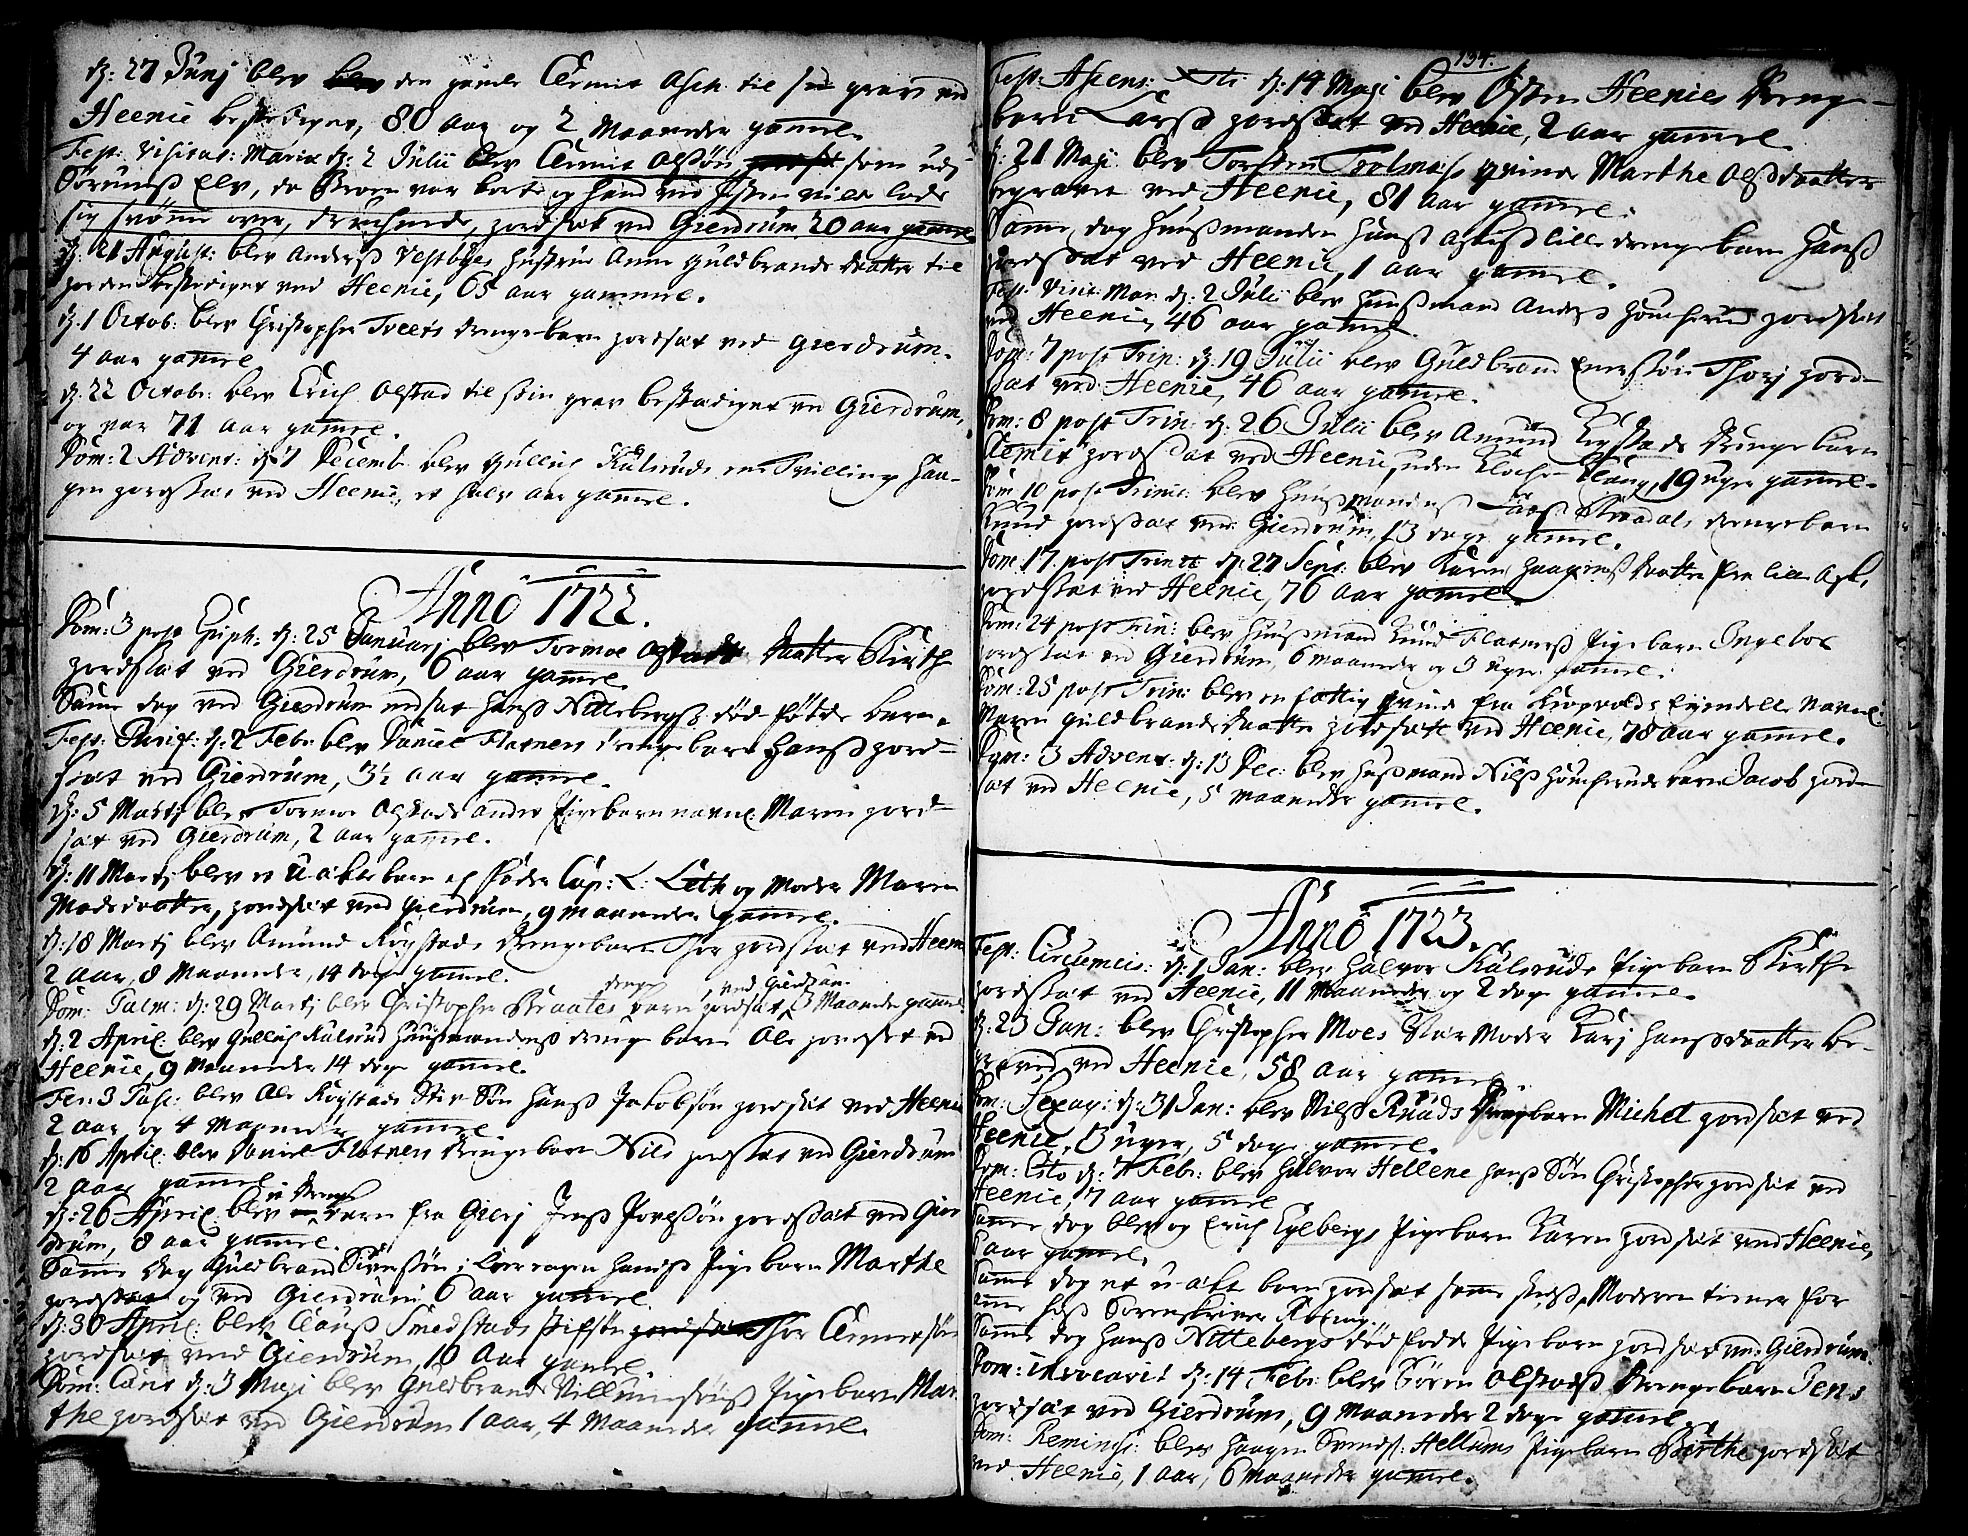 d: 27 Junj blev den gamle Asch til sin grav ved
Heenie bestediget, 80 aar og 2 Maaneder gamel.
Fest: Visitat: Mariæ d: 2 Julii blev Olssøn som udj
Sørums Elv, da Broen var borte og hand ved Hesten vilde lade
sig svømme over, druchnede, jordsat ved Gierdrum 20 aar gamel.
d: 21 August: blev Anders Vestbyes Hustrue Anne Guldbrands daatter til
jorden bestediget ved Heenie, 65 aar gammel.
d. 1 Octob: blev Christopher Tveets drengebarn jordsat ved Gierdrum.
4 aar gamel
d. 22 Octobr: blev Erich Olstad til sin grav bestediget ved Gierdrum,
og var 71 aar gamel.
Dom: 2 Advent: d. 7 Decemb blev Gullich Kulsruds en Tvilling Haa-
gen jordsat ved Heenie, et halv aar gamel.
Anno 1722.
Dom: 3 post Epiph: d: 25 Januarj blev Tormoe Olstads daatter Birthe
jordsat ved Gierdrum, 6 aar gamel.
Samme dag ved Gierdrum nedsat Hans Nittebergs død fødde barn.
Fest: Purif: d: 2 Feb: blev Daniel Flatners drengebarn Hans jord-
sat ved Gierdrum, 3½ aar gamel.
d: 5 Martj blev Tormoe Olstads andet Pigebarn navnl: Maren jord-
sat ved Gierdrum, 2 aar gamel.
d: 11 Martj blev et U-ægte barn af Fader Cap: L: Leth og Moder Maren
Madsdaatter, jordsat ved Gierdrum, 9 Maaneder gamel.
d: 18 Martj blev Amund Kogstads Drengebarn Thor jordsat ved Heenie
2 aar, 8 Maaneder, 14 dage gamel.
Dom: Palm: d: 29 Martj blev Christopher Braates drenge barn jordsat, ved Gierdrum 3 Maaneder gamel
d: 2 April: blev Gullich Kulsrud Huusmandens drenge barn Ole jordsat ved
Heenie, 9 Maaneder 14 dage gamel.
Fer: 3 Pasc: blev Ole Kogstads Stiv Søn Hans Jakobsøn jordsat ved Heenie
2 aar og 4 Maaneder gamel
d: 16 April: blev Daniel Flatners drengebarn Nils jordsat ved Gierdrum
2 aar gamel
d: 26 April: blev et drenge barn fra Gierj Jens Povelsøn jordsat ved Gier
drum, 8 aar gamel.
Samme dag Guldbrand Siversøn i hands Pigebarn Marthe
jordsat og ved Gierdrum 6 aar gamel
d: 30 April: blev Claus Smedstads stifsøn Thor
jordsat ved Gierdrum, 10 aar gamel
Dom: Cant d: 3 Maji blev Guldbrand Villumsøns Pigebarn Mar
the jordsat ved Gierdrum 1 aar, 4 Maaneder gamel.
194.
Fest: Ascens: Xsti d: 14 Maji blev Østen Heenies Drenge-
barn Lars jordsat ved Heenie, 2 aar gamel
d: 21 Maji blev Torsten qvinde Marthe Olsdaatter
begravet ved Heenie, 81 aar gamel.
Samme dag Huusmanden Hans lille drengebarn Hans
jordsat ved Heenie, 1 aar gamel.
Fest: Visit: Mar: d: 2 Julii blev Huusmand Anders jordsat
ved Heenie, 46 aar gamel.
Dom: 7 post Trin: d: 19 Julii blev Guldbrand Enersøn Thorj jord-
sat ved Heenie, 46 aar gamel.
Dom: 8 post Trin: d: 26 Julii blev Amund Kogstads Drengebarn
jordsat ved Heenie, uden Klocke Klang, 19 uger gamel.
Dom 10 post Trinit: blev Huusmandens Lars drengebarn
Knud jordsat ved Gierdrum, 13 dage gamel.
Dom 17 post Trinit d: 27 Sept: blev Karen Haagensdaatter fra lille Ask,
jordsat ved Heenie, 76 aar gamel.
Dom: 24 post Trin: blev Huusmand Knud Flatners Pigebarn Ingebor
jordsat ved Gierdrum, 6 maaneder og 3 uger gamel.
Dom: 25 post Trin: blev en fattig qvind fra Krogvolds Eyendelle navnl:
Maren Guldbrandsdaatter jordsat ved Heenie, 78 aar gamel.
Dom: 3 Advent: d: 13 Dec: blev Husmand Nils barn Jacob jord-
sat ved Heenie, 5 maaneder gamel.
Anno 1723.
Fest: Circumcis: d: 1 Jan: blev Halvor Kulsruds Pigebarn Birthe
jordsat ved Heenie, 11 Maaneder og 2 dage gamel.
d: 23 Jan: blev Christopher Moes Moder Karj Hansdaatter be-
graved ved Heenie, 58 aar gamel.
Dom: Sexag: d: 31 Jan: blev Nils Knuds Drengbarn Michel jordsat ved
Heenie, 3 uger, 5 dage gamel.
Dom: Esto d: 7 Feb: blev Halvor Hellene hans Søn Christopher jordsat ved
Heenie, 7 aar gamel
Samme dag blev og Erich Eylbergs Pigebarn Karen jordsat ved Heenie,
5 aar gamel.
Samme dag et u-ægt barn jordsat samme steds, Moderen tiener for
amme hos Sorenskriver
Samme dag Hans Nittebergs død fødde Pigebarn jordsat ved Gierdrum.
Dom: invocavit d: 14 Feb: blev Søren Olstads Drengebarn Jens
jordsat ved Gierdrum, 9 Maaneder 2 dage gamel.
Dom: Reminis: blev Haagen Svends: Hellums Pigebarn Berthe jordsat
ved Heenie, 1 aar, 6 maaneder gamel.